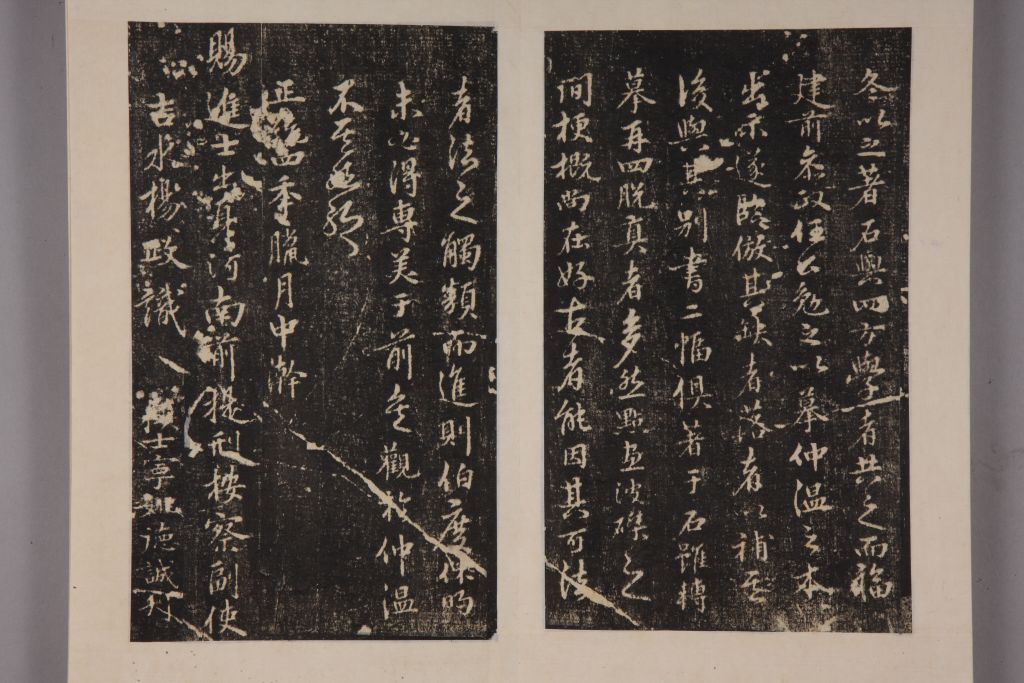 冬以之著石與四方學者共之而福
建前叅政任公勉之以摹仲温之本
出示遂臨倣其缺者落者以補至
後與其别書二幅俱著于石雖轉
摹再四脱真者多然點畫波磔之
間梗概尚在好古者能因其可法
者法之觸類而進則伯度休明
未必得專美于前矣觀於仲温
不其然
正統四年臘月中澣
賜進士出身河南前提刑按察副使
吉水楊政識
士寧姚德誠刊